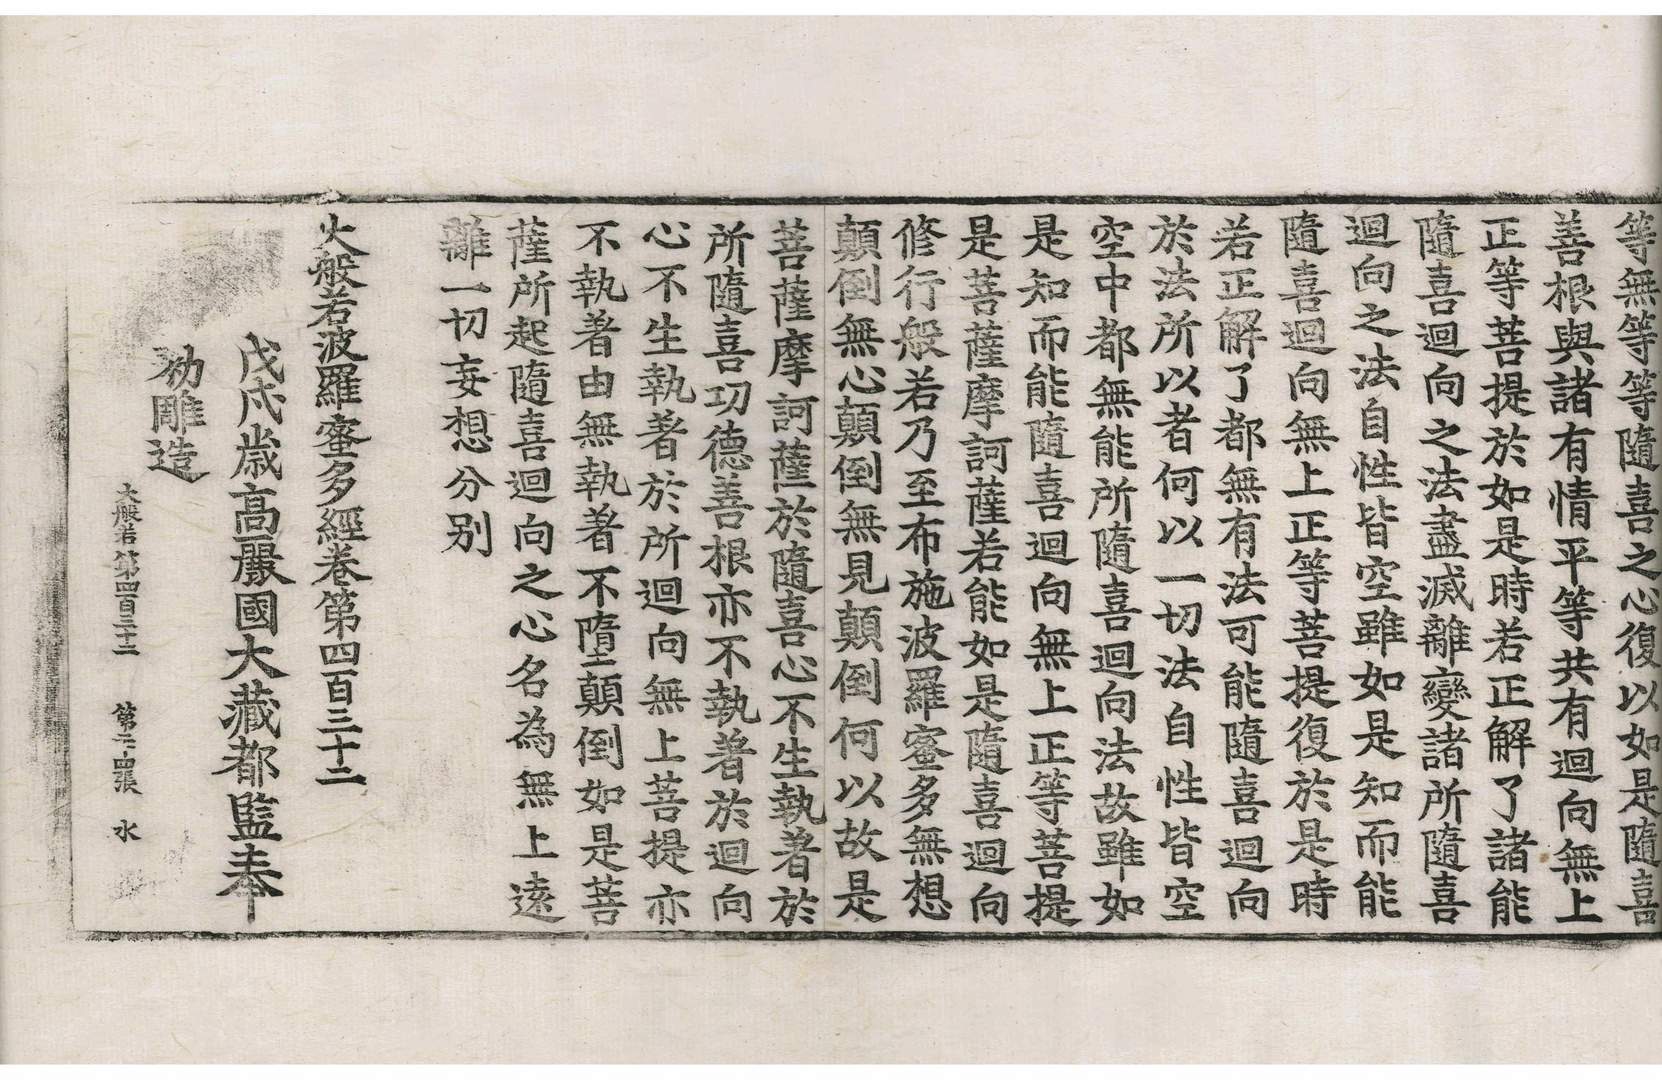 等無等等隨喜之心復以如是隨喜
善根與諸有情平等共有迴向無上
正等菩提於如是時若正解了諸能
隨喜迴向之法盡滅離變諸所隨喜
迴向之法自性皆空雖如是知而能
隨喜迴向無上正等菩提復於是時
若正解了都無有法可能隨喜迴向
於法所以者何以一切法自性皆空
空中都無能所隨喜迴向法故雖如
是知而能隨喜迴向無上正等菩提
是菩薩摩訶薩若能如是隨喜迴向
修行般若乃至布施波羅蜜多無想
顛倒無心顛倒無見顛倒何以故是
菩薩摩訶薩於隨喜心不生執著於
所隨喜功德善根亦不執著於迴向
心不生執著於所迴向無上菩提亦
不執著由無執著不墮顛倒如是菩
薩所起隨喜迴向之心名為無上遠
離一切妄想分別
大般若波羅蜜多經卷第四百三十二
戊戌歲高麗國大藏都監奉
勑雕造
大般若第四百三十二 第二十四張 水